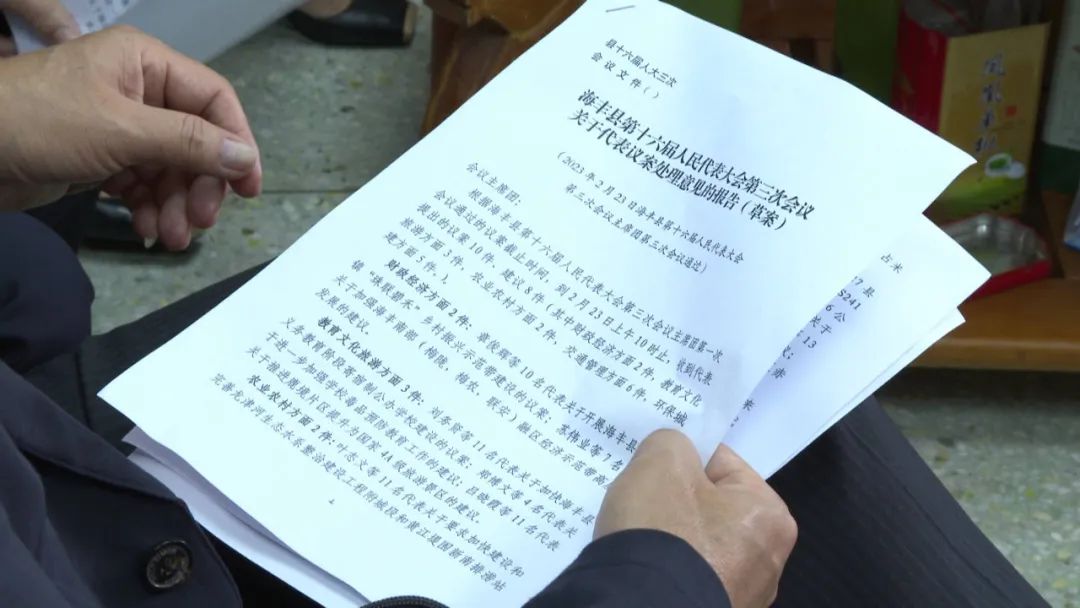 县十六届人大三次
会议文件（ ）
海丰县第十六届人民代表大会第三次会议
关于代表议案处理意见的报告（草案）
（2023年2月23日海丰县第十六届人民代表大会
第三次会议主席团第三次会议通过）
会议主席团：
根据海丰县第十六届人民代表大会第三次会议主席团第一次
会议通过的议案截止时间，到2月23日上午10时止，收到代表
提出的议案10件，建议8件（其中财政经济方面2件，教育文化
旅游方面3件，农业农村方面2件，交通管理方面6件，环保城
建方面5件。）
财政经济方面2件：等10名代表关于开展海丰县
镇“珠联碧禾”乡村振兴示范带建设的议案，苏伟业等7名
关于加强海丰南部（梅陇、梅农、联安）融区经济示范带高
发展的建议。
教育文化旅游方面3件：刘务育等11名代表关于加快海丰县
义务教育阶段寄宿制公办学校建设的议案；郑博文等4名代表关
于进一步加强学校毒品预防教育工作的建议；吕晓霞等11名代表
关于推进片区提升为国家4A级旅游景区的建议。
农业农村方面2件：叶志文等11名代表关于要求加快建设和
完善龙津河生态水系整治建设工程附城段和黄江堤围新南排涝站
凤凰单枞
占米
17县
S241
6公
关于
13